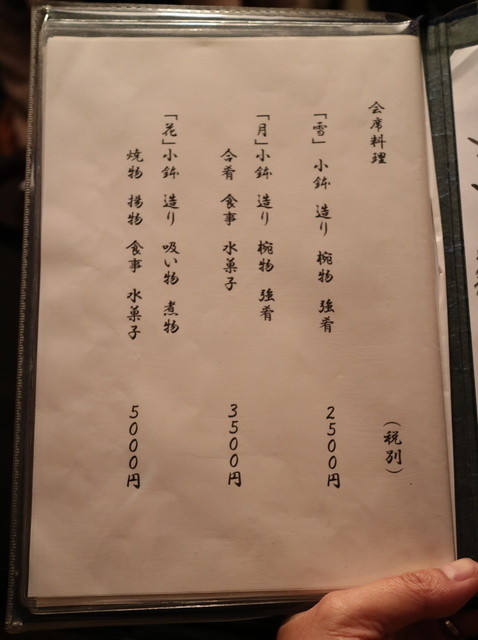 会席料理
(税別)
「雪」 小鉢 造り 椀物 強肴
2500円
「月」小鉢 造り 椀物 強肴
合肴 食事 水菓子
3500円
「花」小鉢 造り 吸い物 煮物
焼物 揚物 食事 水菓子
5000円